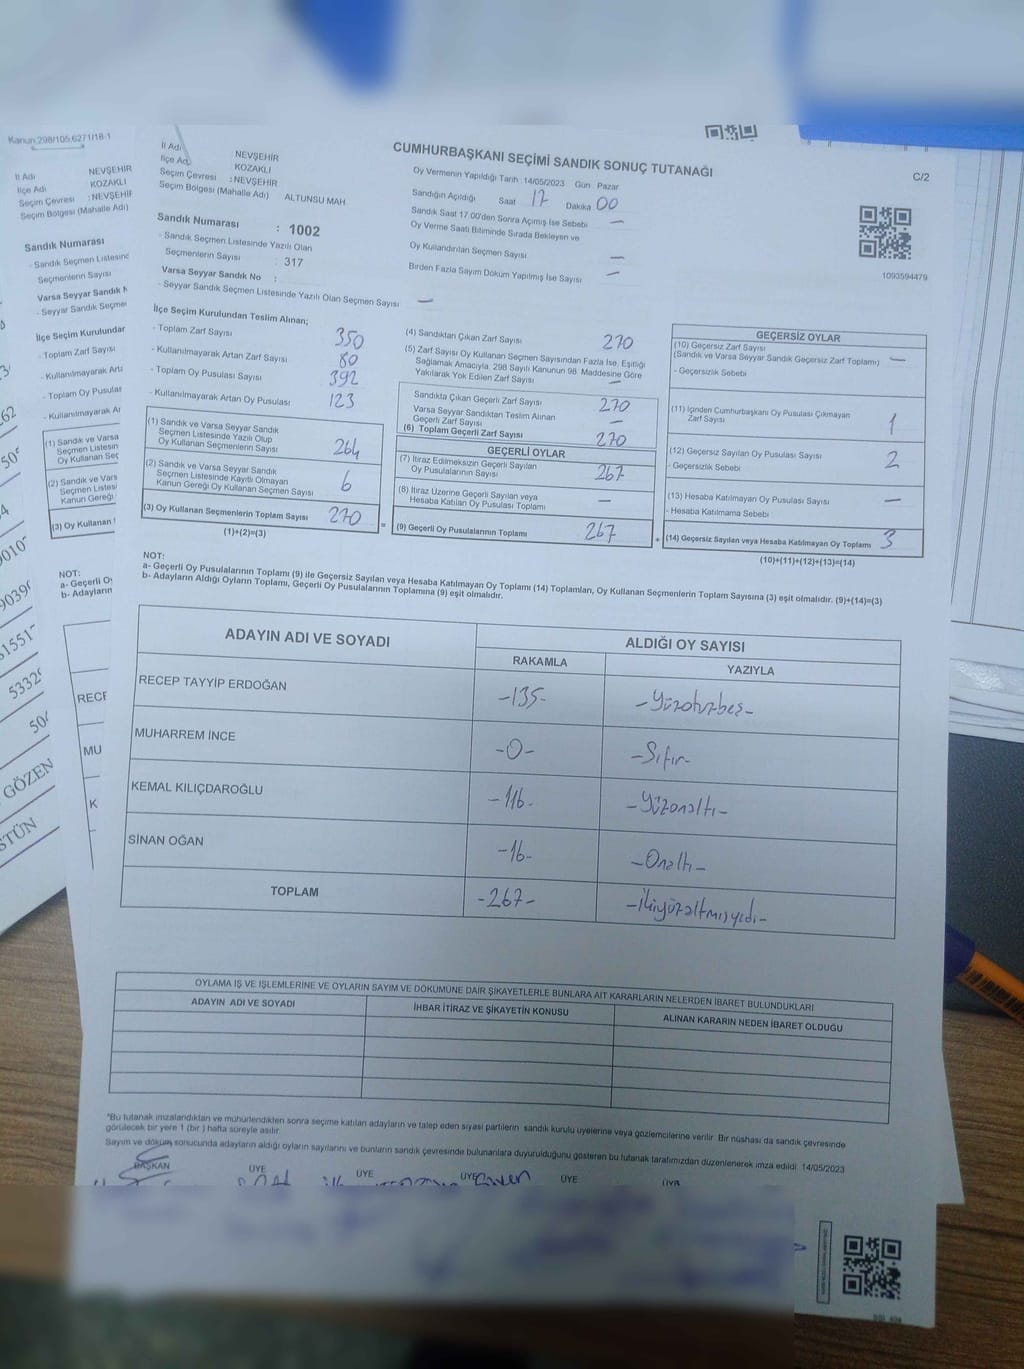 Kanun 298/105,6271/18-1
İl Adı NEVŞEHİR
İlçe Adı KOZAKLI
Seçim Çevresi : NEVŞEHİR
Seçim Bölgesi (Mahalle Adı)
Sandık Numarası
- Sandık Seçmen Listesinde
Seçmenlerin Sayısı
Varsa Seyyar Sandık N
- Seyyar Sandık Seçmen
İlçe Seçim Kurulundan
- Toplam Zarf Sayısı
- Kullanılmayarak Artı
- Toplam Oy Pusulas
- Kullanılmayarak Ar
(1) Sandık ve Varsa
Seçmen Listesin
Oy Kullanan Seç
(2) Sandık ve Vars
Seçmen Listes
Kanun Gereği
(3) Oy Kullanan
NOT:
a- Geçerli O
b- Adayların
RECE
MU
K
GÖZEN
STÜN
CUMHURBAŞKANI SEÇİMİ SANDIK SONUÇ TUTANAĞI
C/2
İl Adı NEVŞEHİR
İlçe Adı KOZAKLI
Seçim Çevresi : NEVŞEHİR
Seçim Bölgesi (Mahalle Adı) ALTUNSU MAH.
Oy Vermenin Yapıldığı Tarih :14/05/2023 Gün Pazar
Sandığın Açıldığı Saat 17 Dakika 00
Sandık Saat 17.00'den Sonra Açılmış İse Sebebi —
Oy Verme Saati Bitiminde Sırada Bekleyen ve
Oy Kullandırılan Seçmen Sayısı —
Birden Fazla Sayım Döküm Yapılmış İse Sayısı —
1093594479
Sandık Numarası : 1002
- Sandık Seçmen Listesinde Yazılı Olan
Seçmenlerin Sayısı : 317
Varsa Seyyar Sandık No :
- Seyyar Sandık Seçmen Listesinde Yazılı Olan Seçmen Sayısı —
İlçe Seçim Kurulundan Teslim Alınan;
- Toplam Zarf Sayısı 350
- Kullanılmayarak Artan Zarf Sayısı 80
- Toplam Oy Pusulası Sayısı 392
- Kullanılmayarak Artan Oy Pusulası 123
(1) Sandık ve Varsa Seyyar Sandık
Seçmen Listesinde Yazılı Olup
Oy Kullanan Seçmenlerin Sayısı 264
(2) Sandık ve Varsa Seyyar Sandık
Seçmen Listesinde Kayıtlı Olmayan
Kanun Gereği Oy Kullanan Seçmen Sayısı 6
(3) Oy Kullanan Seçmenlerin Toplam Sayısı 270
(1)+(2)=(3)
(4) Sandıktan Çıkan Zarf Sayısı 270
(5) Zarf Sayısı Oy Kullanan Seçmen Sayısından Fazla İse, Eşitliği
Sağlamak Amacıyla, 298 Sayılı Kanunun 98. Maddesine Göre
Yakılarak Yok Edilen Zarf Sayısı —
Sandıkta Çıkan Geçerli Zarf Sayısı 270
Varsa Seyyar Sandıktan Teslim Alınan
Geçerli Zarf Sayısı
(6) Toplam Geçerli Zarf Sayısı 270
GEÇERLİ OYLAR
(7) İtiraz Edilmeksizin Geçerli Sayılan
Oy Pusulalarının Sayısı 267
(8) İtiraz Üzerine Geçerli Sayılan veya
Hesaba Katılan Oy Pusulası Toplamı —
= (9) Geçerli Oy Pusulalarının Toplamı 267 +
GEÇERSİZ OYLAR
(10) Geçersiz Zarf Sayısı
(Sandık ve Varsa Seyyar Sandık Geçersiz Zarf Toplamı) —
- Geçersizlik Sebebi
(11) İçinden Cumhurbaşkanı Oy Pusulası Çıkmayan
Zarf Sayısı 1
(12) Geçersiz Sayılan Oy Pusulası Sayısı 2
- Geçersizlik Sebebi
(13) Hesaba Katılmayan Oy Pusulası Sayısı —
- Hesaba Katılmama Sebebi
(14) Geçersiz Sayılan veya Hesaba Katılmayan Oy Toplamı 3
(10)+(11)+(12)+(13)=(14)
NOT:
a- Geçerli Oy Pusulalarının Toplamı (9) ile Geçersiz Sayılan veya Hesaba Katılmayan Oy Toplamı (14) Toplamları, Oy Kullanan Seçmenlerin Toplam Sayısına (3) eşit olmalıdır. (9)+(14)=(3)
b- Adayların Aldığı Oyların Toplamı, Geçerli Oy Pusulalarının Toplamına (9) eşit olmalıdır.
ADAYIN ADI VE SOYADI ALDIĞI OY SAYISI
RAKAMLA YAZIYLA
RECEP TAYYİP ERDOĞAN -135- -Yüzotuzbeş-
MUHARREM İNCE -0- -Sıfır-
KEMAL KILIÇDAROĞLU -116- -Yüzonaltı-
SİNAN OĞAN -16- -Onaltı-
TOPLAM -267- -İkiyüzaltmışyedi-
OYLAMA İŞ VE İŞLEMLERİNE VE OYLARIN SAYIM VE DÖKÜMÜNE DAİR ŞİKAYETLERLE BUNLARA AİT KARARLARIN NELERDEN İBARET BULUNDUKLARI
ADAYIN ADI VE SOYADI İHBAR İTİRAZ VE ŞİKAYETİN KONUSU ALINAN KARARIN NEDEN İBARET OLDUĞU
*Bu tutanak imzalandıktan ve mühürlendikten sonra seçime katılan adayların ve talep eden siyasi partilerin sandık kurulu üyelerine veya gözlemcilerine verilir. Bir nüshası da sandık çevresinde
görülecek bir yere 1 (bir ) hafta süreyle asılır.
Sayım ve döküm sonucunda adayların aldığı oyların sayılarını ve bunların sandık çevresinde bulunanlara duyurulduğunu gösteren bu tutanak tarafımızdan düzenlenerek imza edildi. 14/05/2023
BAŞKAN ÜYE ÜYE ÜYE ÜYE ÜYE